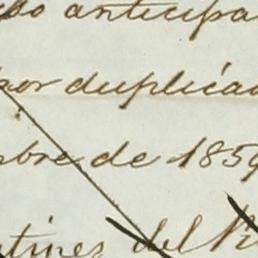 do anticipa
por duplica
bre de 1859
tines del